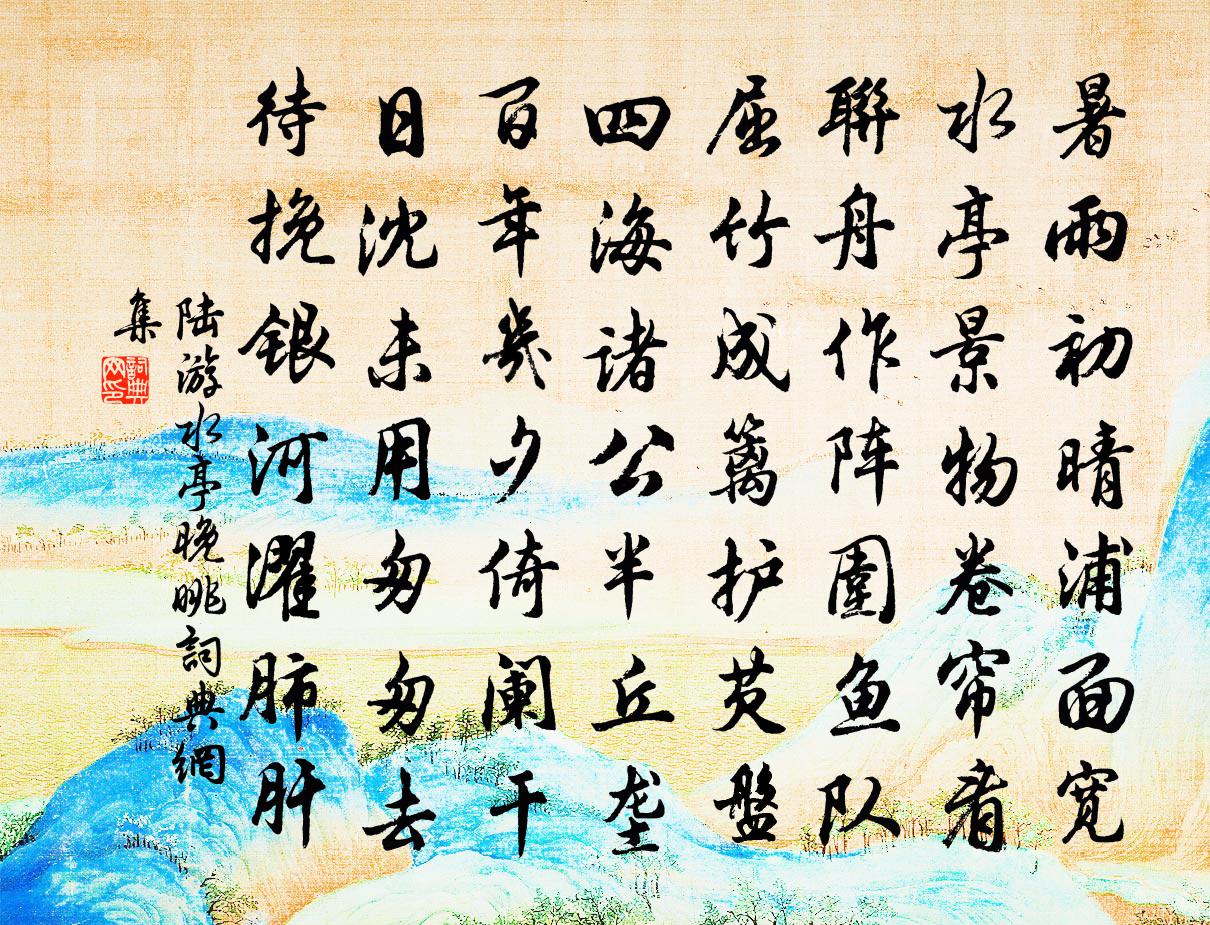 暑雨初晴浦面宽
水亭景物卷帘看
聯舟作阵围鱼队
屈竹成篱护芡盤
四海诸公半丘垄
百年几夕倚阑干
日沈未用匆匆去
待挽银河濯肺肝
陆游水亭晚眺詞典網
集
詞典
网印